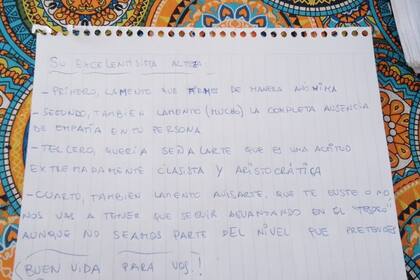 SU EXCELENTISISTA ALTEZA
- PRIMERO, LAMENTO QUE FIRMES DE MANERA ANONIMA
- SEGUNDO, TAMBIEN LAMENTO (MUCHO) LA COMPLETA AUSENCIA
DE EMPATÍA EN TU PERSONA
- TERCERO, QUERÍA SEÑALARTE QUE ES UNA ACTITUD
EXTREMADAMENTE CLASISTA Y ARISTOCRÁTICA
- CUARTO, TAMBIEN LAMENTO AVISARTE, QUE TE GUSTE O NO
NOS VAS A TENER QUE SEGUIR AGUANTANDO EN EL
AUNQUE NO SEAMOS PARTE DEL NIVEL QUE PRETENDES
¡BUEN VIDA PARA VOS!